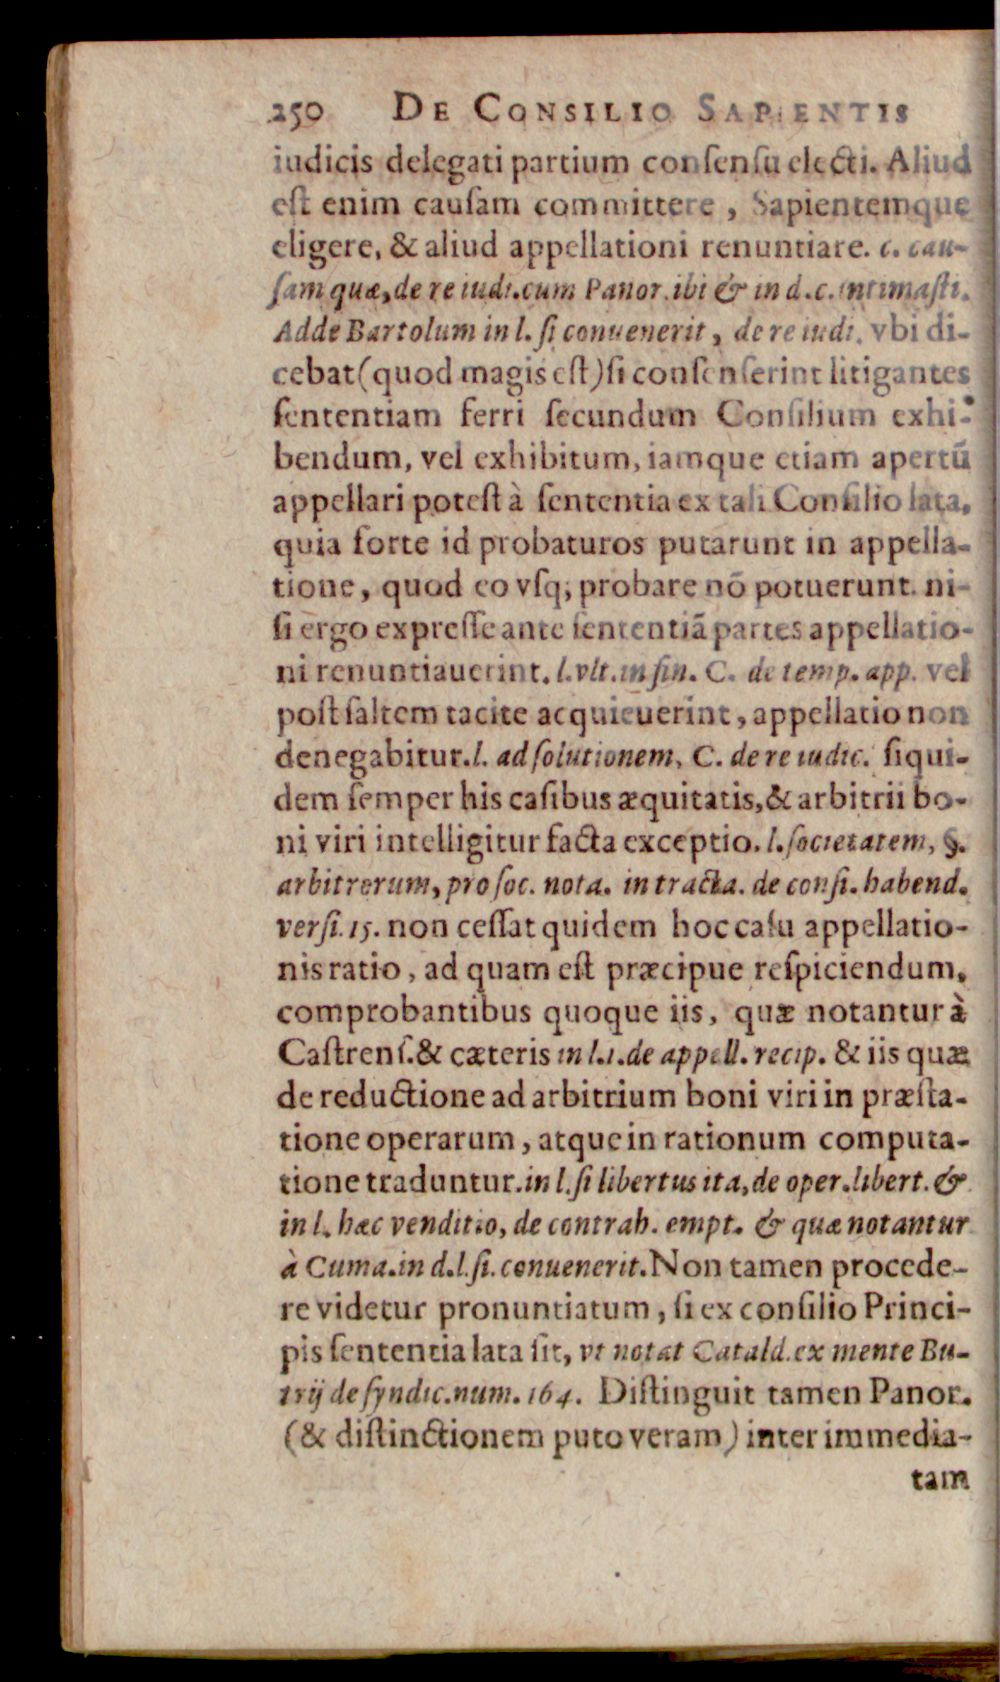 250 DE CONSILIO SAPIENTIS
iudicis delegati partium conſenſu electi. Aliud
eſt enim cauſam committere , Sapientemque
eligere, & aliud appellationi renuntiare. c. cau-
ſam quæ, de re iudi. cum Panor. ibi & in d. c. intimaſti.
Adde Bartolum in l. ſi conuenerit , de re iudi. vbi di-
cebat (quod magis eſt) ſi conſenſerint litigantes
ſententiam ferri ſecundum Conſilium exhi-
bendum, vel exhibitum, iamque etiam apertū
appellari poteſt à ſententia ex tali Conſilio lata.
quia forte id probaturos putarunt in appella-
tione, quod eo vſq; probare nō potuerunt. ni-
ſi ergo expreſſe ante ſententiā partes appellatio-
ni renuntiauerint. l. vlt. in fin. C. de temp. app. vel
poſt ſaltem tacite acquieuerint , appellatio non
denegabitur. l. ad ſolutionem, C. de re iudic. ſiqui-
dem ſemper his caſibus æquitatis, & arbitrii bo-
ni viri intelligitur facta exceptio. l. ſocietatem, §.
arbitrorum, pro ſoc. nota. in tracta. de conſi. habend.
verſi. 15. non ceſſat quidem hoc caſu appellatio-
nis ratio , ad quam eſt præcipue reſpiciendum,
comprobantibus quoque iis, quæ notantur à
Caſtrenſ. & cæteris in l. 1. de appell. recip. & iis quæ
de reductione ad arbitrium boni viri in præſta-
tione operarum , atque in rationum computa-
tione traduntur. in l. ſi libertus ita, de oper. libert. &
in l. hæc venditio, de contrah. empt. & quæ notantur
à Cuma. in d. l. ſi. conuenerit. Non tamen procede-
re videtur pronuntiatum , ſi ex conſilio Princi-
pis ſententia lata ſit, vt notat Catald. ex mente Bu-
trij de ſyndic. num. 164. Diſtinguit tamen Panor.
(& diſtinctionem puto veram) inter immedia-
tam